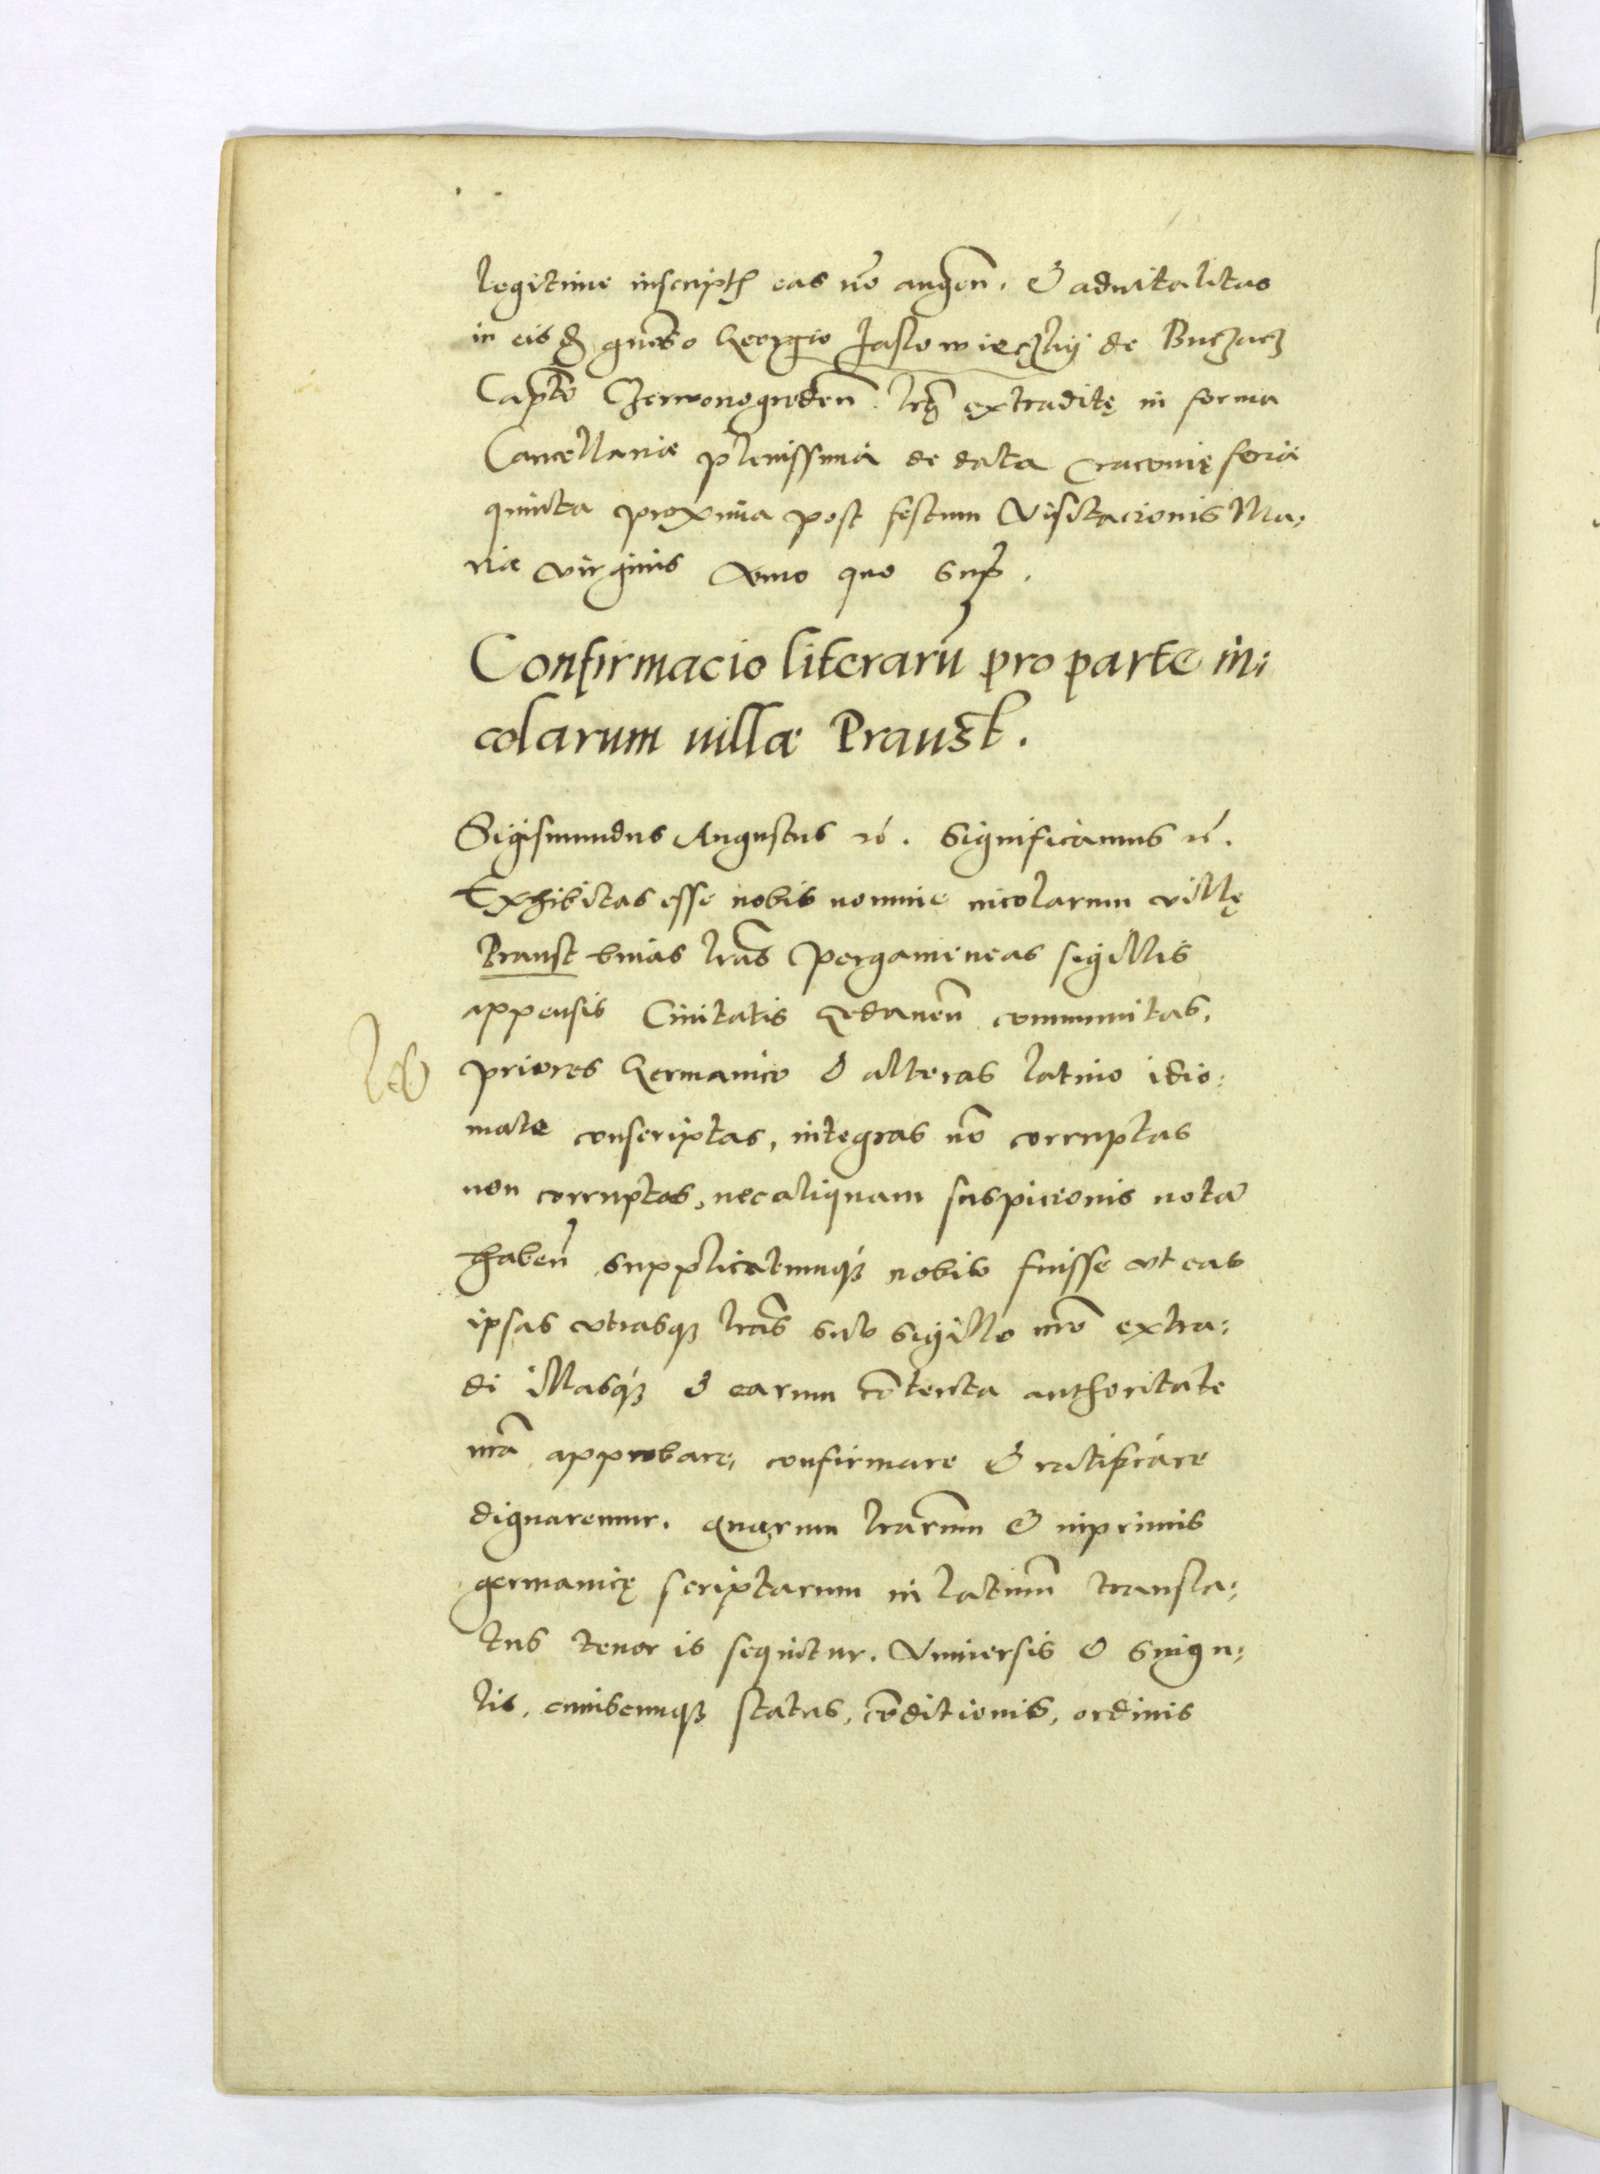 legitime inscript eas nō augen. & aduitalitas
in eisdē gnoso Georgio Jaslowieczky de Buczacz
Captō Czerwonogroden. lrę extraditę in forma
Cancellariæ plenissima de data Cracovię feria
quinta proxima post festum Visitacionis Ma,
riæ virginis Anno quo sup̄.
Confirmacio literarū pro parte in,
colarum uillæ Praust.
Sigismundus Augustus rc̄. Significamus rc̄.
Exhibitas esse nobis nomine incolarum villę
Praust binas lrās pergameneas sigillis
appensis Ciuitatis Gedanen̄ communitas,
priores Germanico & alteras latino idio,
mate conscriptas, integras nō corruptas
non corruptas, nec aliquam suspicionis notā
haben̄ supplicatumq3 nobis fuisse vt eas
ipsas vtrasq3 lrās sub sigillo nrō extra,
di illasq3 & earum cōtenta authoritate
nrā approbare, confirmare & ratificare
dignaremur. quarum lrārum & inprimis
germanicę scriptarum in latinum transla,
tus tenor is sequitur. Vniuersis & Singu,
lis, cuiuscunq3 status, cōditionis, ordinis